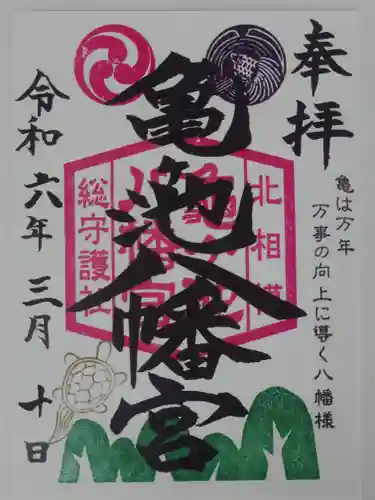 奉拝
亀は万年
万事の向上に導く八幡様
北相模
総守護社
亀ヶ池八幡宮
令和六年三月十日